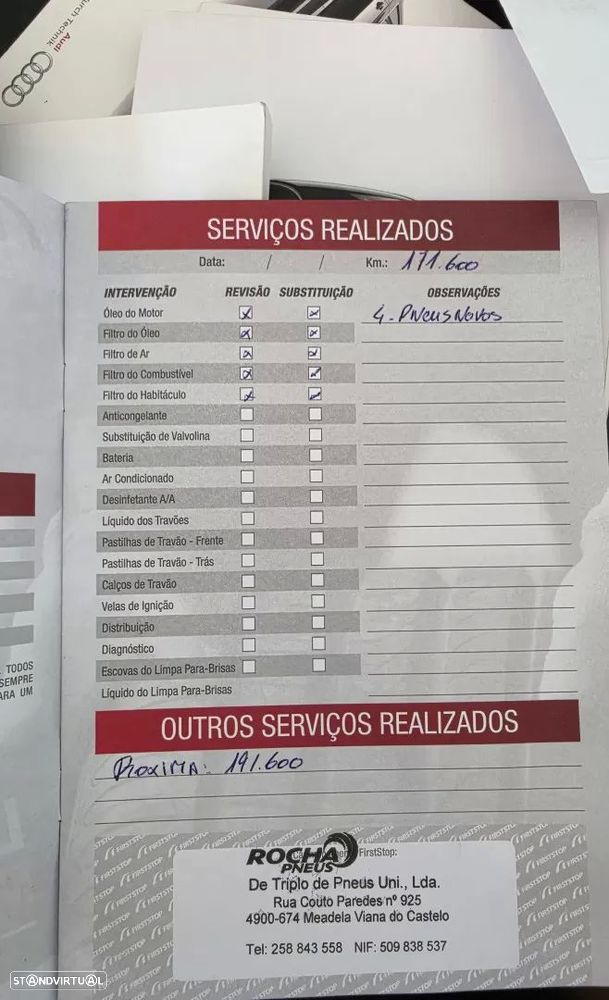 Audi
durch Technik
SERVIÇOS REALIZADOS
Data: / / Km.: 171.600
INTERVENÇÃO REVISÃO SUBSTITUIÇÃO OBSERVAÇÕES
Óleo do Motor 4 - PNEUS NOVOS
Filtro do Óleo
Filtro de Ar
Filtro do Combustível
Filtro do Habitáculo
Anticongelante
Substituição de Valvolina
Bateria
Ar Condicionado
Desinfetante A/A
Líquido dos Travões
Pastilhas de Travão - Frente
Pastilhas de Travão - Trás
Calços de Travão
Velas de Ignição
Distribuição
Diagnóstico
Escovas do Limpa Para-Brisas
Líquido do Limpa Para-Brisas
TODOS
SEMPRE
ARA UM
OUTROS SERVIÇOS REALIZADOS
PROXIMA: 191.600
FirstStop:
ROCHA
PNEUS
De Triplo de Pneus Uni., Lda.
Rua Couto Paredes nº 925
4900-674 Meadela Viana do Castelo
Tel: 258 843 558 NIF: 509 838 537
FIRSTSTOP
STANDVIRTUAL